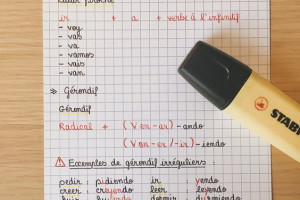 ir + a + verbe à l'infinitif
- voy
- vas
- va
- vamos
- vais
- van
» Gérondif
Gérondif
Radical + (V en -ar) - ando
(V en -er/-ir) - iendo
⚠ Exemples de gérondif irréguliers :
pedir : pidiendo ir : yendo
creer : creyendo leer : leyendo
: durmiendo
STAB